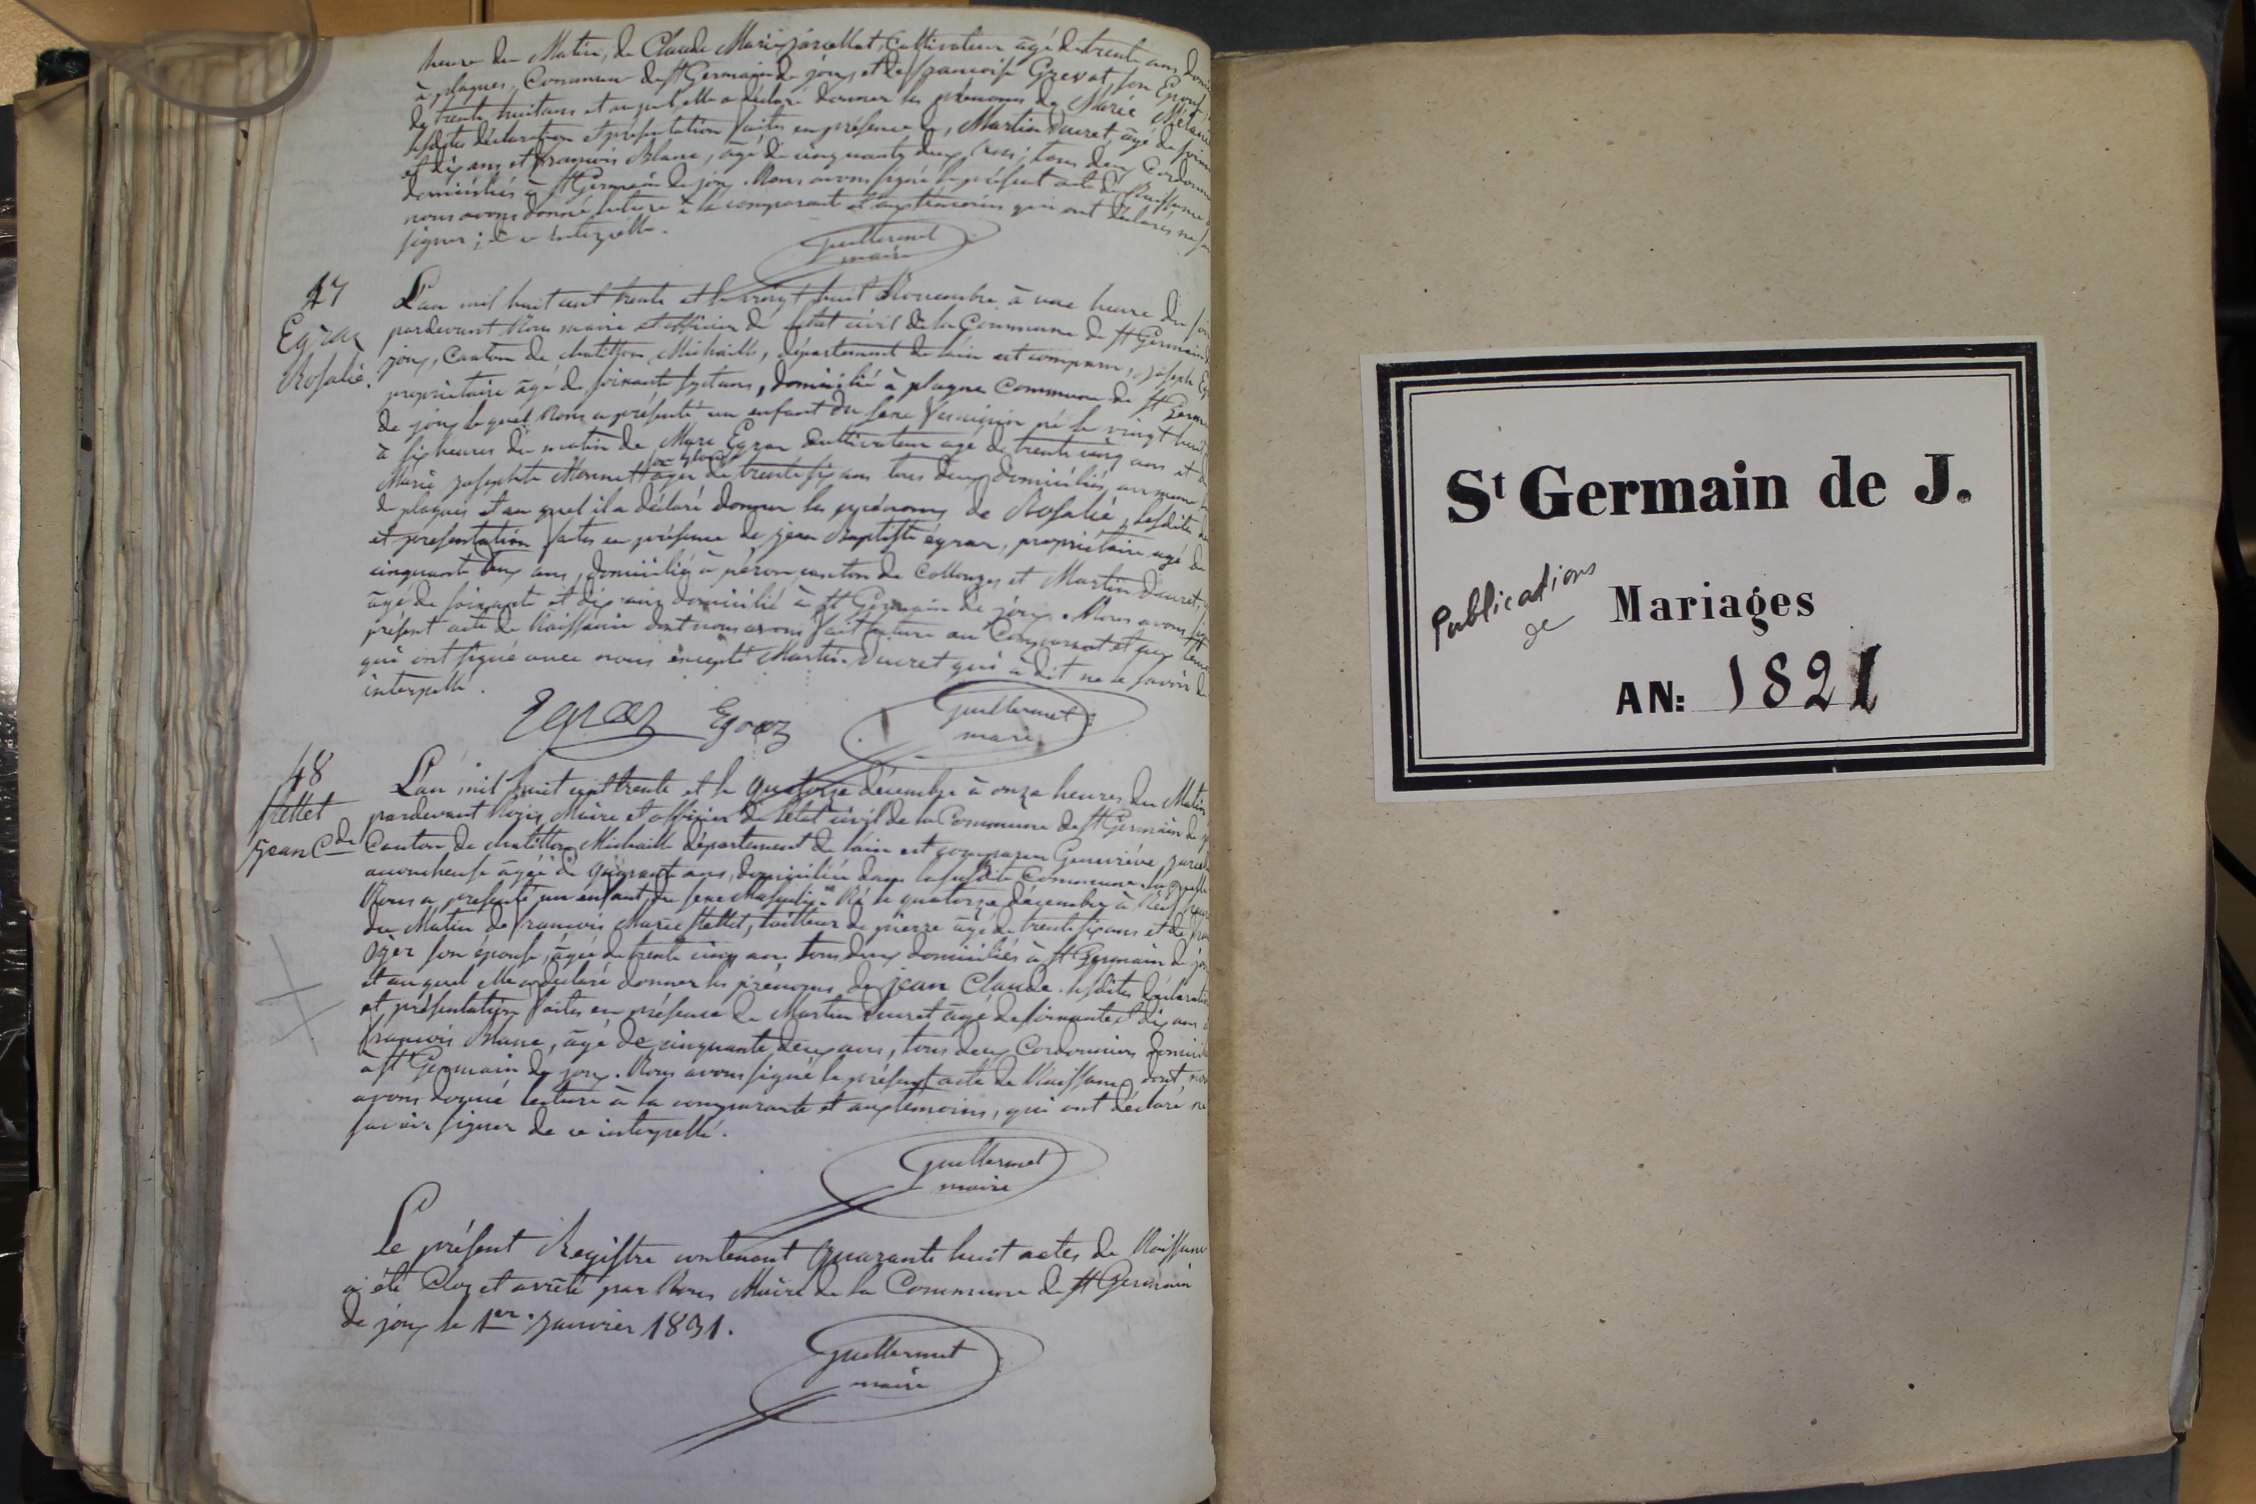 heure du Matin, de Claude Marie jarcellat, Cultivateur âgé de trente ans
à plagnes, Commune de St Germain de joux, et de françoise Grevat, son Epouse
de trente huit ans et auquel elle a déclaré donner les prénoms de Marie Mélanie
lesdites déclaration et présentation faites en présence de, Martin Ducret, âgé de
et dix ans et françois Blanc, âgé de cinquante deux ans; tous deux Cordonniers
domiciliés à St Germain de joux. Nous avons signé le présent acte de Naissance
nous avons donné lecture à la comparante et aux témoins qui ont déclarés ne
signer; de ce interpellé.
Guillermet
maire
47
Egraz
Rosalie.
L'an mil huit cent trente et le vingt huit Novembre à une heure du
pardevant Nous maire et officier de l'état civil de la Commune de St Germain
joux, Canton de chatillon Michaille, département de l'ain est comparu, joseph
propriétaire âgé de soixante sept ans, domicilié à plagne Commune de St
de joux lequel Nous a présenté un enfant du sexe féminin né le vingt huit
à six heures du matin de Marc Egraz Cultivateur agé de trente cinq ans et de
Marie josephte Monnet son épouse âgée de trente six ans tous deux domiciliés au
de plagnes et au quel il a déclaré donner les prénoms de Rosalie, lesdites
et présentation faites en présence de jean Baptiste égraz, propriétaire agé de
cinquante deux ans, domicilié à péron, canton de Collonges et Martin Ducret,
âgé de soixante et dix ans domicilié à St Germain de joux. Nous avons
présent acte de Naissance dont nous avons fait lecture au Comparant et aux
qui ont signé avec nous excepté Martin Ducret qui a dit ne le savoir de
interpellé.
Egraz Egraz
Guillermet
maire
48
frettet
jean Cde
L'an mil huit cent trente et le quatorze décembre à onze heures du Matin
pardevant Nous, Maire et officier de l'état civil de la Commune de St Germain de
Canton de chatillon Michaille département de l'ain est comparue Geneviève
accoucheuse âgée de quarante ans, domiciliée dans la susdite Commune, laquelle
Nous a présenté un enfant du sexe Masculin Né le quatorze décembre à Neuf
du Matin de françois Marie frettet, tailleur de pierre âgé de trente six ans et de
son épouse, âgée de trente cinq ans tous deux domiciliés à St Germain de
et auquel elle a déclaré donner les prénoms de jean Claude. lesdites déclaration
et présentation faites en présence de Martin Ducret âgé de soixante et dix ans
françois Blanc, âgé de cinquante deux ans, tous deux Cordonniers
à St Germain de joux. Nous avons signé le présent acte de Naissance dont
avons donné lecture à la comparante et aux témoins, qui ont déclaré ne
savoir signer de ce interpellé.
Guillermet
maire
Le présent Registre contenant quarante huit actes de Naissance
a été Clos et arrêté par Nous Maire de la Commune de St Germain
de joux le 1er janvier 1831.
Guillermet
maire
St Germain de J.
Publications
de
Mariages
AN: 1821